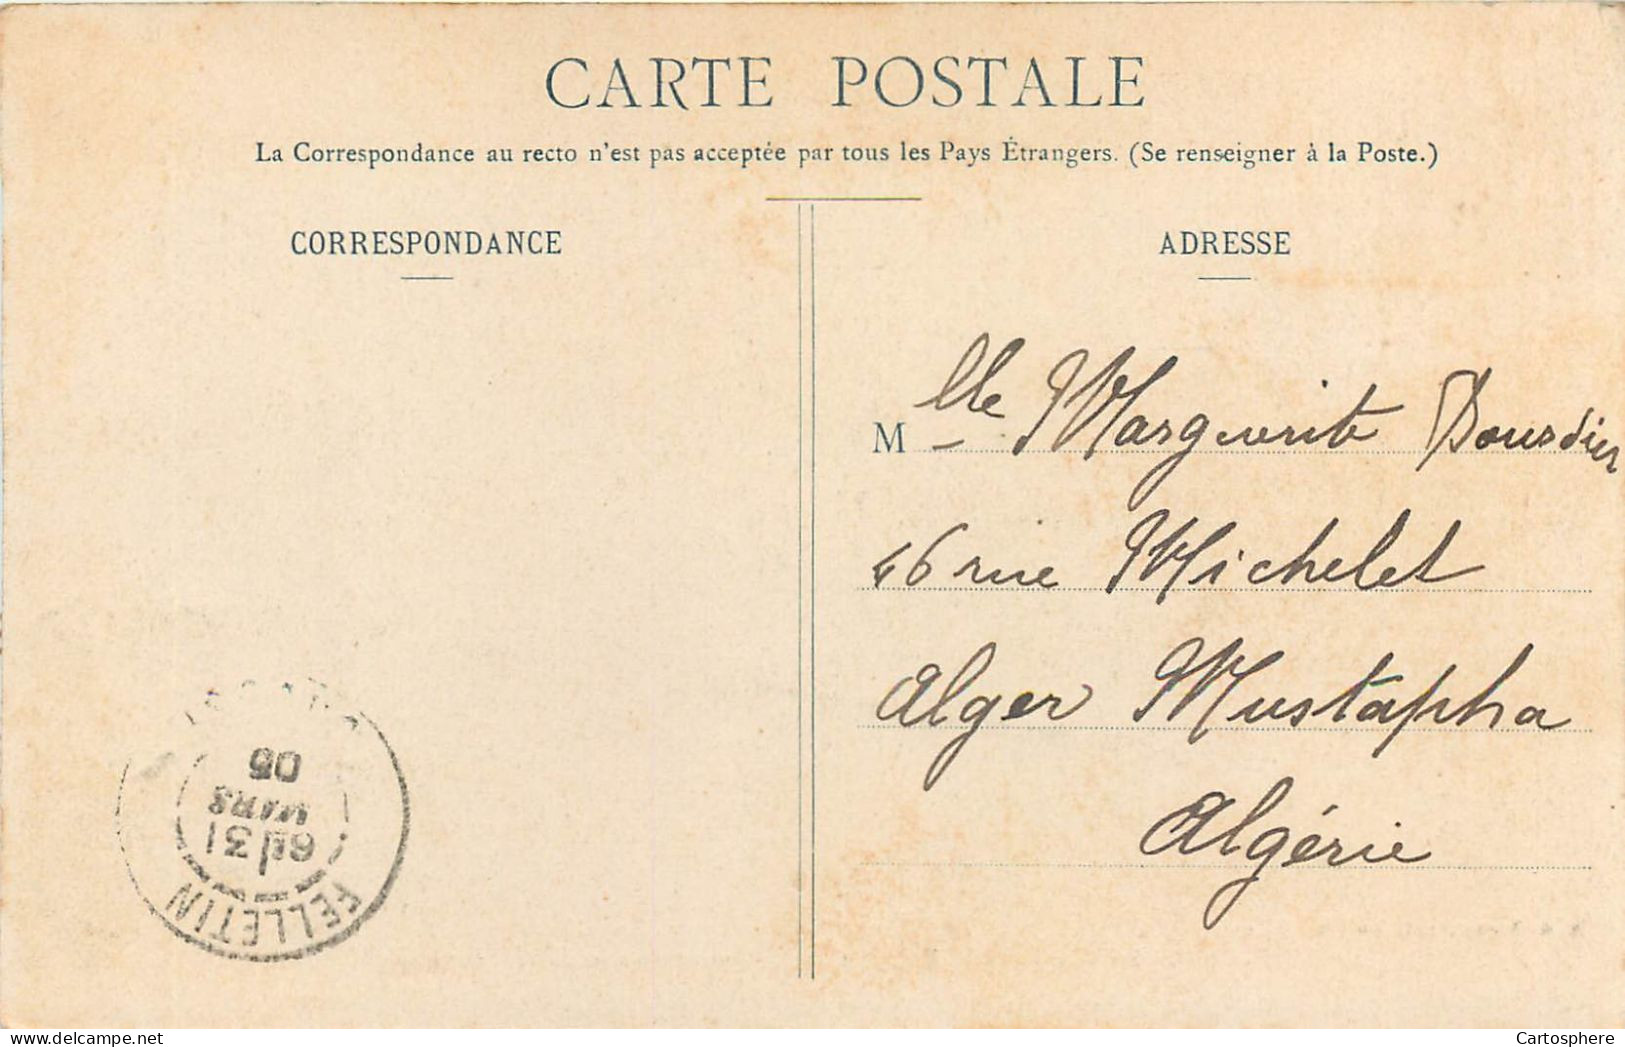 CARTE POSTALE
La Correspondance au recto n'est pas acceptée par tous les Pays Étrangers. (Se renseigner à la Poste.)
CORRESPONDANCE
ADRESSE
Mlle Marguerite Dousdier
46 rue Michelet
Alger Mustapha
Algérie
FELLETIN
31
MARS
05
Cartosphere